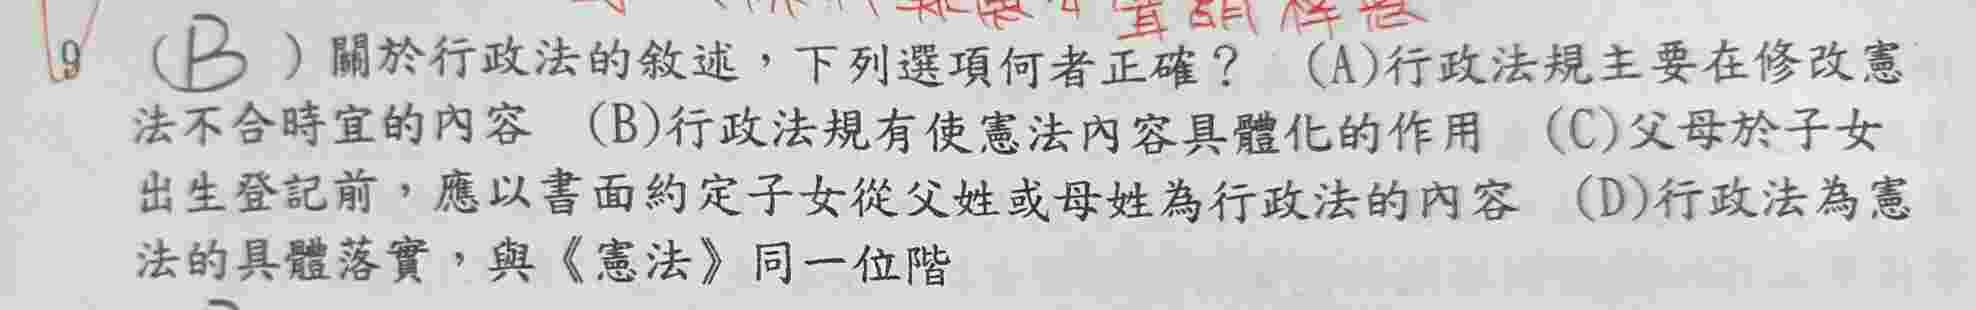 9 （B ）關於行政法的敘述，下列選項何者正確？ (A)行政法規主要在修改憲
法不合時宜的內容 (B)行政法規有使憲法內容具體化的作用 (C)父母於子女
出生登記前，應以書面約定子女從父姓或母姓為行政法的內容 (D)行政法為憲
法的具體落實，與《憲法》同一位階